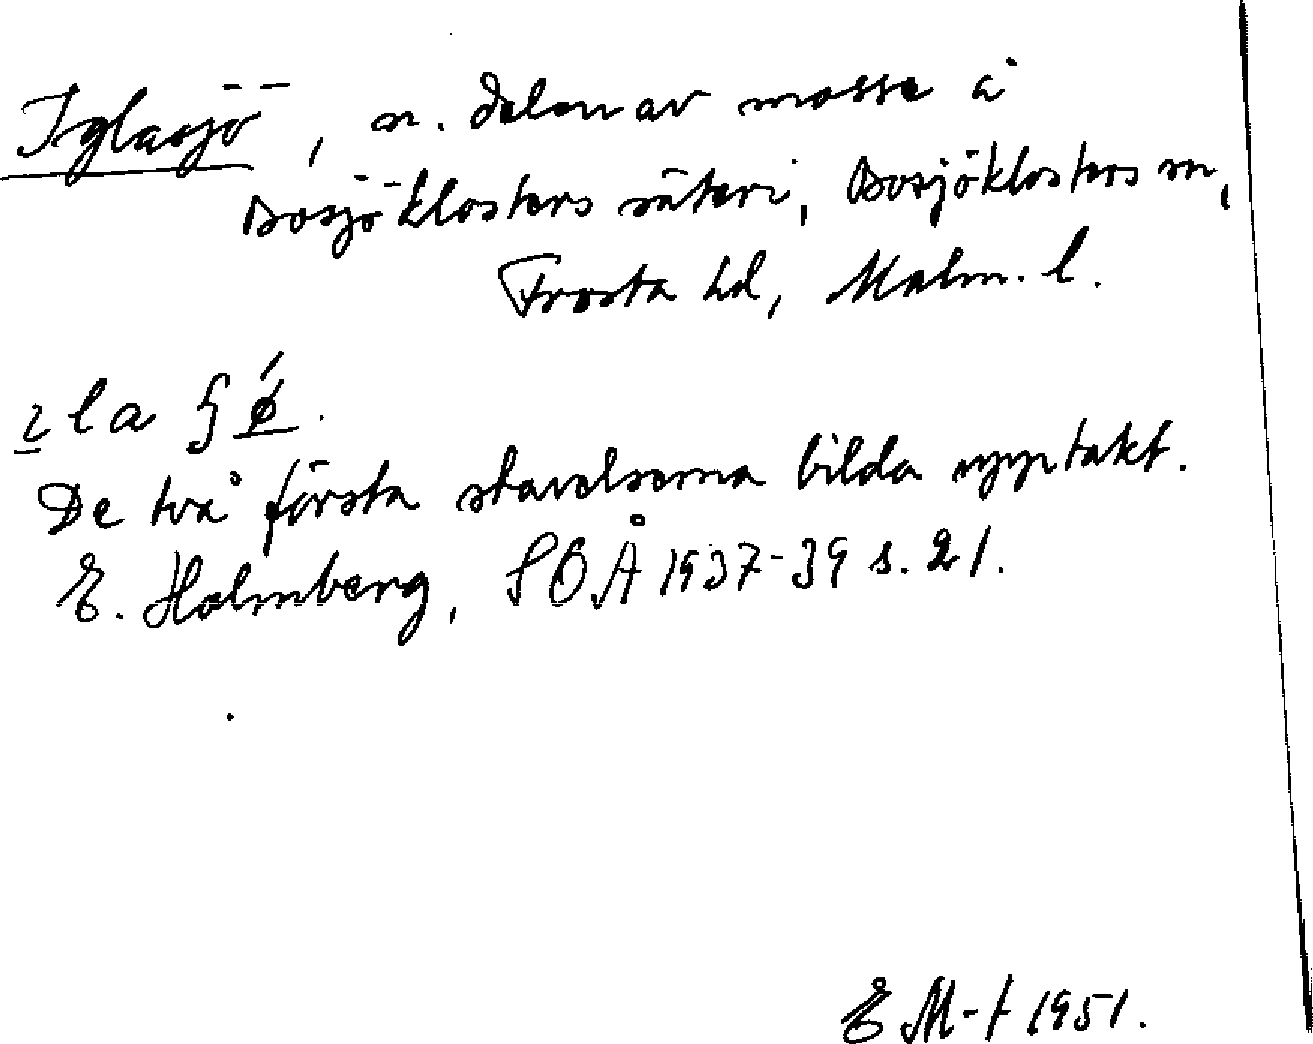 Iglasjö, n. delen av mosse å
Bosjöklosters säteri, Bosjöklosters sn,
Frosta hd, Malm. l.
ɩla ʃǿ.
De två första stavelserna bilda upptakt.
E. Holmberg, SOÅ 1937-39 s. 21.
E M-t 1951.